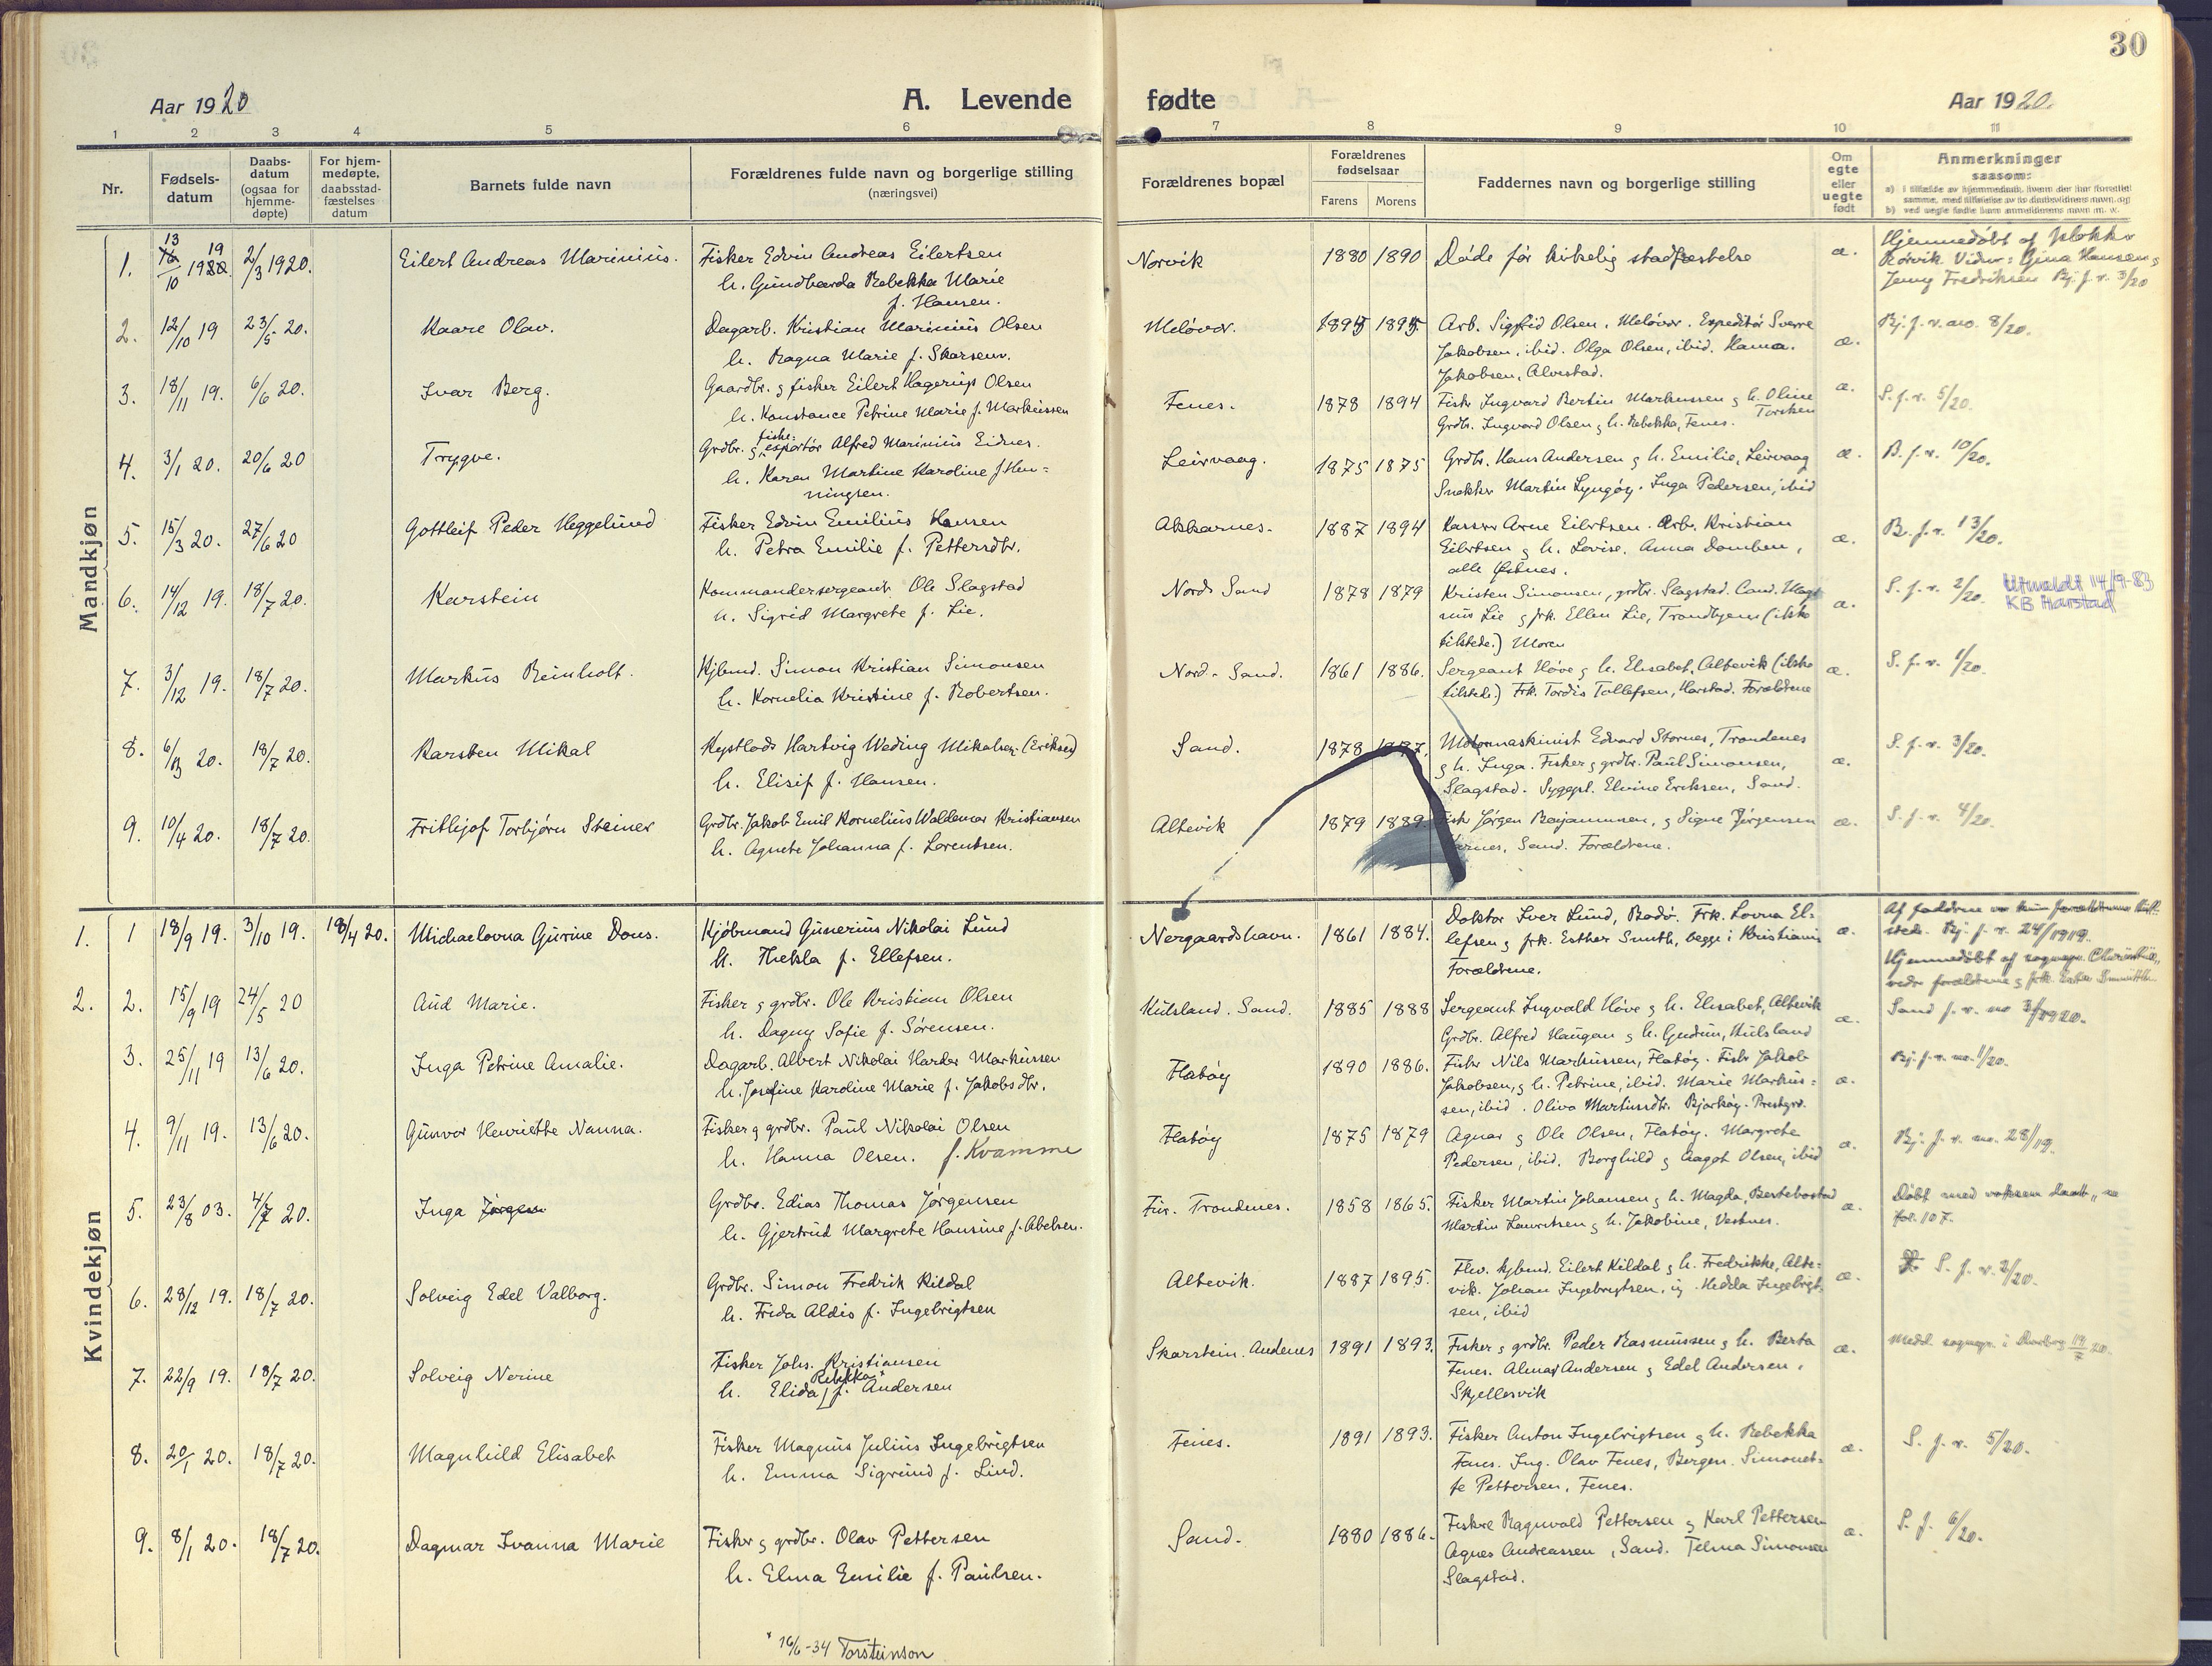 30
Aar 1920
A. Levende fødte
Aar 1920.
1 2 3 4 5 6 7 8 9 10 11
Nr.
Fødsels-datum
Daabs-datum (ogsaa for hjemme-døpte)
For hjem-medøpte, daabsstad-fæstelses datum
Barnets fulde navn
Forældrenes fulde navn og borgerlige stilling (næringsvei)
Forældrenes bopæl
Forældrenes fødselsaar
Farens Morens
Faddernes navn og borgerlige stilling
Om egte eller uegte født
Anmerkninger saasom:
Mandkjøn
1. 13/10 1919 2/3 1920. Eilert Andreas Marinius. Fisker Edvin Andreas Eilertsen Norvik 1880 1890 Døde før kirkelig stadfæstelse æ. Hjemmedøbt af
h. Gundharda Rebekka Marie Rørvik. Vidner: Gina Hansen &
f. Hansen. Jenny Fredriksen Bj. f. r. 3/20
2. 12/10 19 23/5 20. Kaare Olav. Dagarb. Kristian Marinius Olsen Meløvær. 1895 1895. Arb. Sigfrid Olsen, Meløvær. Expeditør Sverre æ. Bj. f. r. no. 8/20.
h. Ragna Marie f. Skarsenv. Jakobsen, ibid. Olga Olsen, ibid. Hanna
Jakobsen, Alvestad.
3. 18/11 19. 6/6 20. Ivar Berg. Gaardbr. & fisker Eilert Hagerup Olsen Fenes. 1878 1894 Fisker Ingvard Bertin Markussen & h. Oline Torsken æ. S. f. r. 5/20.
h. Konstance Petrine Marie f. Markussen Grdbr. Ingvard Olsen & h. Rebekka, Fenes.
4. 3/1 20. 20/6 20 Trygve. Grdbr. & fiske-exportør Alfred Marinius Eidnes. Leirvaag. 1875 1875 Grdbr. Hans Andersen & h. Emilie, Leirvaag æ. B. f. r. 10/20.
h. Karen Martine Karoline f. Hen- Snekker Martin Lyngøy. Inga Pedersen, ibid
ningsen.
5. 15/3 20. 27/6 20 Gottleif Peder Heggelund Fisker Edvin Emilius Hansen Akkarnes. 1887 1894 Kasser Arne Eilertsen. Arb. Kristian æ. B. f. r. 13/20.
h. Petra Emilie f. Pettersdtr. Eilertsen & h. Lovise. Anna Domben,
alle Østnes.
6. 14/12 19. 18/7 20. Karstein Kommandersergeant Ole Slagstad Nord-Sand 1878 1879 Kristen Simonsen, grdbr. Slagstad. Cand. Mag- æ. S. f. r. 2/20. Utmeldt 14/9-83
h. Sigrid Margrete f. Lie. nus Lie & frk. Ellen Lie, Trondhjem (ikke KB Harstad
tilstede.) Moren
7. 3/12 19. 18/7 20. Markus Reinholt. Kjbmd. Simon Kristian Simonsen Nord-Sand. 1861 1886. Sergeant Høve & h. Elisabet, Altevik (ikke æ. S. f. r. 1/20.
h. Kornelia Kristine f. Robertsen. tilstede.) Frk. Tordis Tollefsen, Harstad. Forældrene
8. 6/3 20. 18/7 20. Karsten Mikal Kystlods Hartvig Weding Mikalsen (Eriksen) Sand. 1878 1887. Motormaskinist Edvard Stornes, Trondenes æ. S. f. r. 3/20.
h. Elisif f. Hansen. & h. Inga. Fisker & grdbr. Paul Simonsen,
Slagstad. Sygepl. Elvine Eriksen, Sand.
9. 10/4 20. 18/7 20. Frithjof Torbjørn Steiner Grdbr. Jakob Emil Kornelius Waldemar Kristiansen Altevik 1879 1889. Fisker Jørgen Benjaminsen, & Signe Jørgensen æ. S. f. r. 4/20.
h. Agnete Johanna f. Lorentsen. Sand. Forældrene.
Kvindekjøn
1. 1 18/9 19. 3/10 19. 18/4 20. Michaelovna Gurine Dons. Kjøbmand Gunerius Nikolai Lund Nergaardshavn. 1861 1884. Doktor Iver Lund, Bodø. Frk. Lovna El- æ. Af faddrene var kun forældrene
h. Thekla f. Ellefsen. lefsen & frk. Esther Smith, begge i Kristiania stede. Bj. f. r. 24/1919.
Forældrene. Hjemmedøbt af sogneprest
2. 2. 15/9 19 24/5 20 Aud Marie. Fisker & grdbr. Ole Kristian Olsen Kulsland. Sand. 1885 1888 Sergeant Ingvald Høve & h. Elisabet, Altevik æ. Sand f. r. no 3/1920.
h. Dagny Sofie f. Sørensen. Grdbr. Alfred Haugan & h. Gudrun, Kulsland
3. 25/11 19 13/6 20. Inga Petrine Amalie. Dagarb. Albert Nikolai Harder Markussen Flatøy 1890 1886. Fisker Nils Markussen, Flatøy. Fisker Jakob æ. Bj. f. r. no. 1/20.
h. Josefine Karoline Marie f. Jakobsdtr. Jakobsen, & h. Petrine, ibid. Marie Markus-
sen, ibid. Oliva Martinsdtr. Bjarkøy. Prestgrd.
4. 9/11 19. 13/6 20. Gunvor Henriette Nanna. Fisker & grdbr. Paul Nikolai Olsen Flatøy 1875 1879 Agnar & Ole Olsen, Flatøy. Margrete æ. Bj. f. r. no. 28/19.
h. Hanna Olsen. f. Kvamme Pedersen, ibid. Borghild & Aagot Olsen, ibid
5. 23/8 03. 4/7 20. Inga Jørgen Grdbr. Edias Thomas Jørgensen Fur. Trondenes. 1858 1865. Fisker Martin Johansen & h. Magda, Bertebostad æ. Døbt med voksen daab,
h. Gjertrud Margrete Hansine f. Abelsen. Martin Lauritsen & h. Jakobine, Vestnes. fol. 107.
6. 28/12 19. 18/7 20. Solveig Edel Valborg. Grdbr. Simon Fredrik Kildal Altevik. 1887 1895. Flv. kjbmd. Eilert Kildal & h. Fredrikke, Alte- æ. S. f. r. 2/20.
h. Frida Aldis f. Ingebrigtsen vik. Johan Ingebrigtsen, ig. Hedda Ingebrigt-
sen, ibid
7. 22/9 19. 18/7 20. Solveig Nerine Fisker Johs. Kristiansen Skarstein. Andenes 1891 1893. Fisker & grdbr. Peder Rasmussen & h. Berta æ. Medd. sognepr. i
h. Elida Rebekka* f. Andersen Fenes. Almar Andersen & Edel Andersen,
Skjellesvik
8. 20/1 20. 18/7 20. Magnhild Elisabet Fisker Magnus Julius Ingebrigtsen Fenes. 1891 1893. Fisker Anton Ingebrigtsen & h. Rebekka æ. S. f. r. 5/20.
h. Emma Sigrund f. Lind. Fenes. Ing. Olav Fenes, Bergen. Simonet-
te Pettersen, Fenes.
9. 8/1 20. 18/7 20. Dagmar Ivanna Marie Fisker & grdbr. Olav Pettersen Sand. 1880 1886. Fiskere Ragnvald Pettersen & Karl Pettersen æ. S. f. 6/20.
h. Elma Emilie f. Paulsen. Agnes Andreassen, Sand. Telma Simonsen
Slagstad.
* 16/6-34 Torsteinson